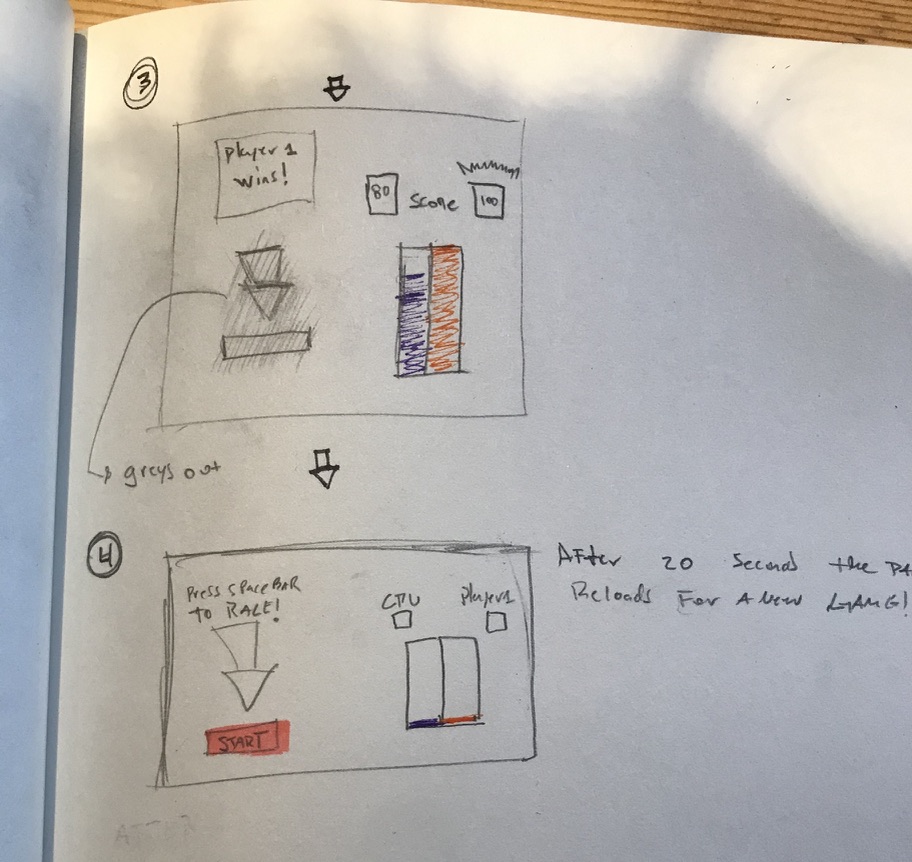 3
player 1
wins!
80 Score 100
greys out
4
Press SpaceBAR
to RACE!
CPU Player1
START
After 20 Second the
Reloads For A New GAME!
AFTER